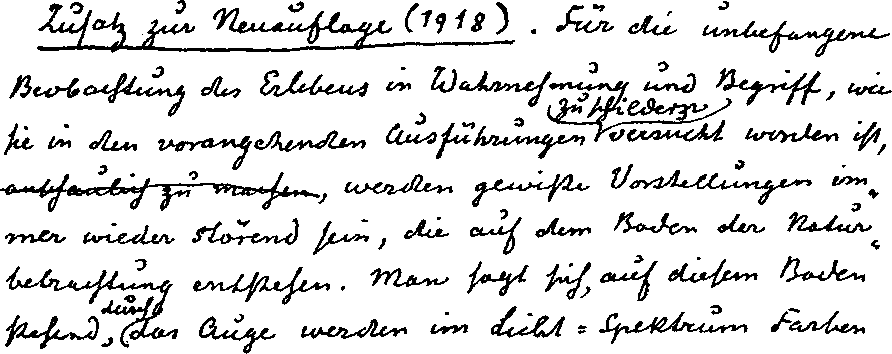 Zusatz zur Neuauflage (1918). Für die unbefangene
Beobachtung des Erlebens in Wahrnehmung und Begriff, wie
zu schildern
sie in den vorangehenden Ausführungen versucht worden ist,
anschaulich zu machen, werden gewisse Vorstellungen im„
mer wieder störend sein, die auf dem Boden der Natur„
betrachtung entstehen. Man sagt sich, auf diesem Boden
durch
stehend, das Auge werden im Licht = Spektrum Farben